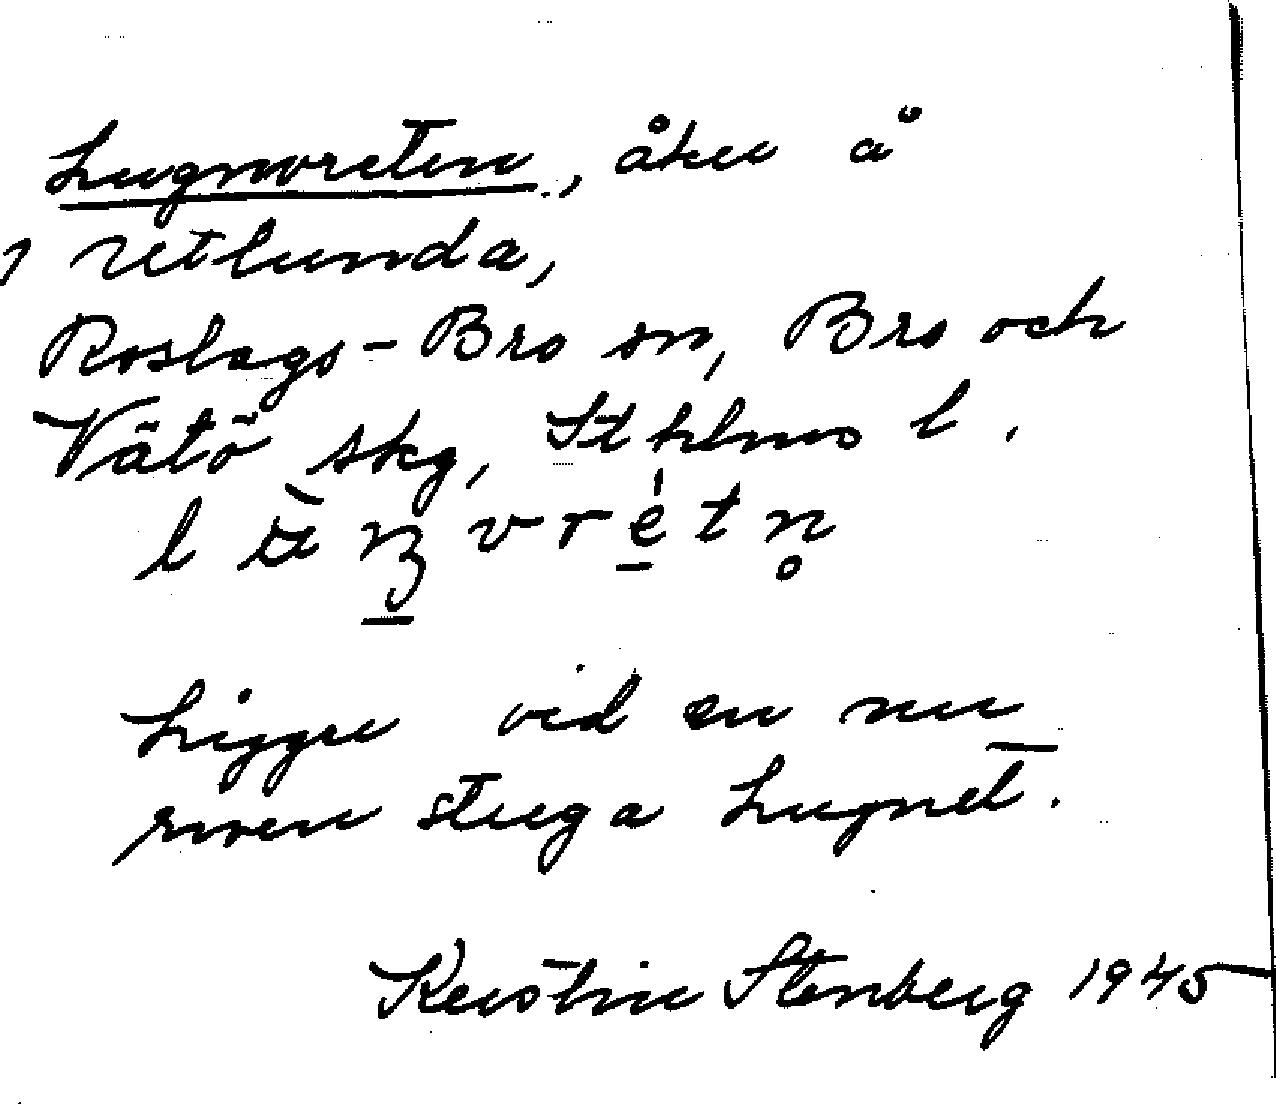 Lugnvreten, åker å
Vetlunda,
Roslags-Bro sn, Bro och
Vätö skg, Sthlms l.
Ligger vid en nu
riven stuga Lugnet.
Kerstin Stenberg 1945